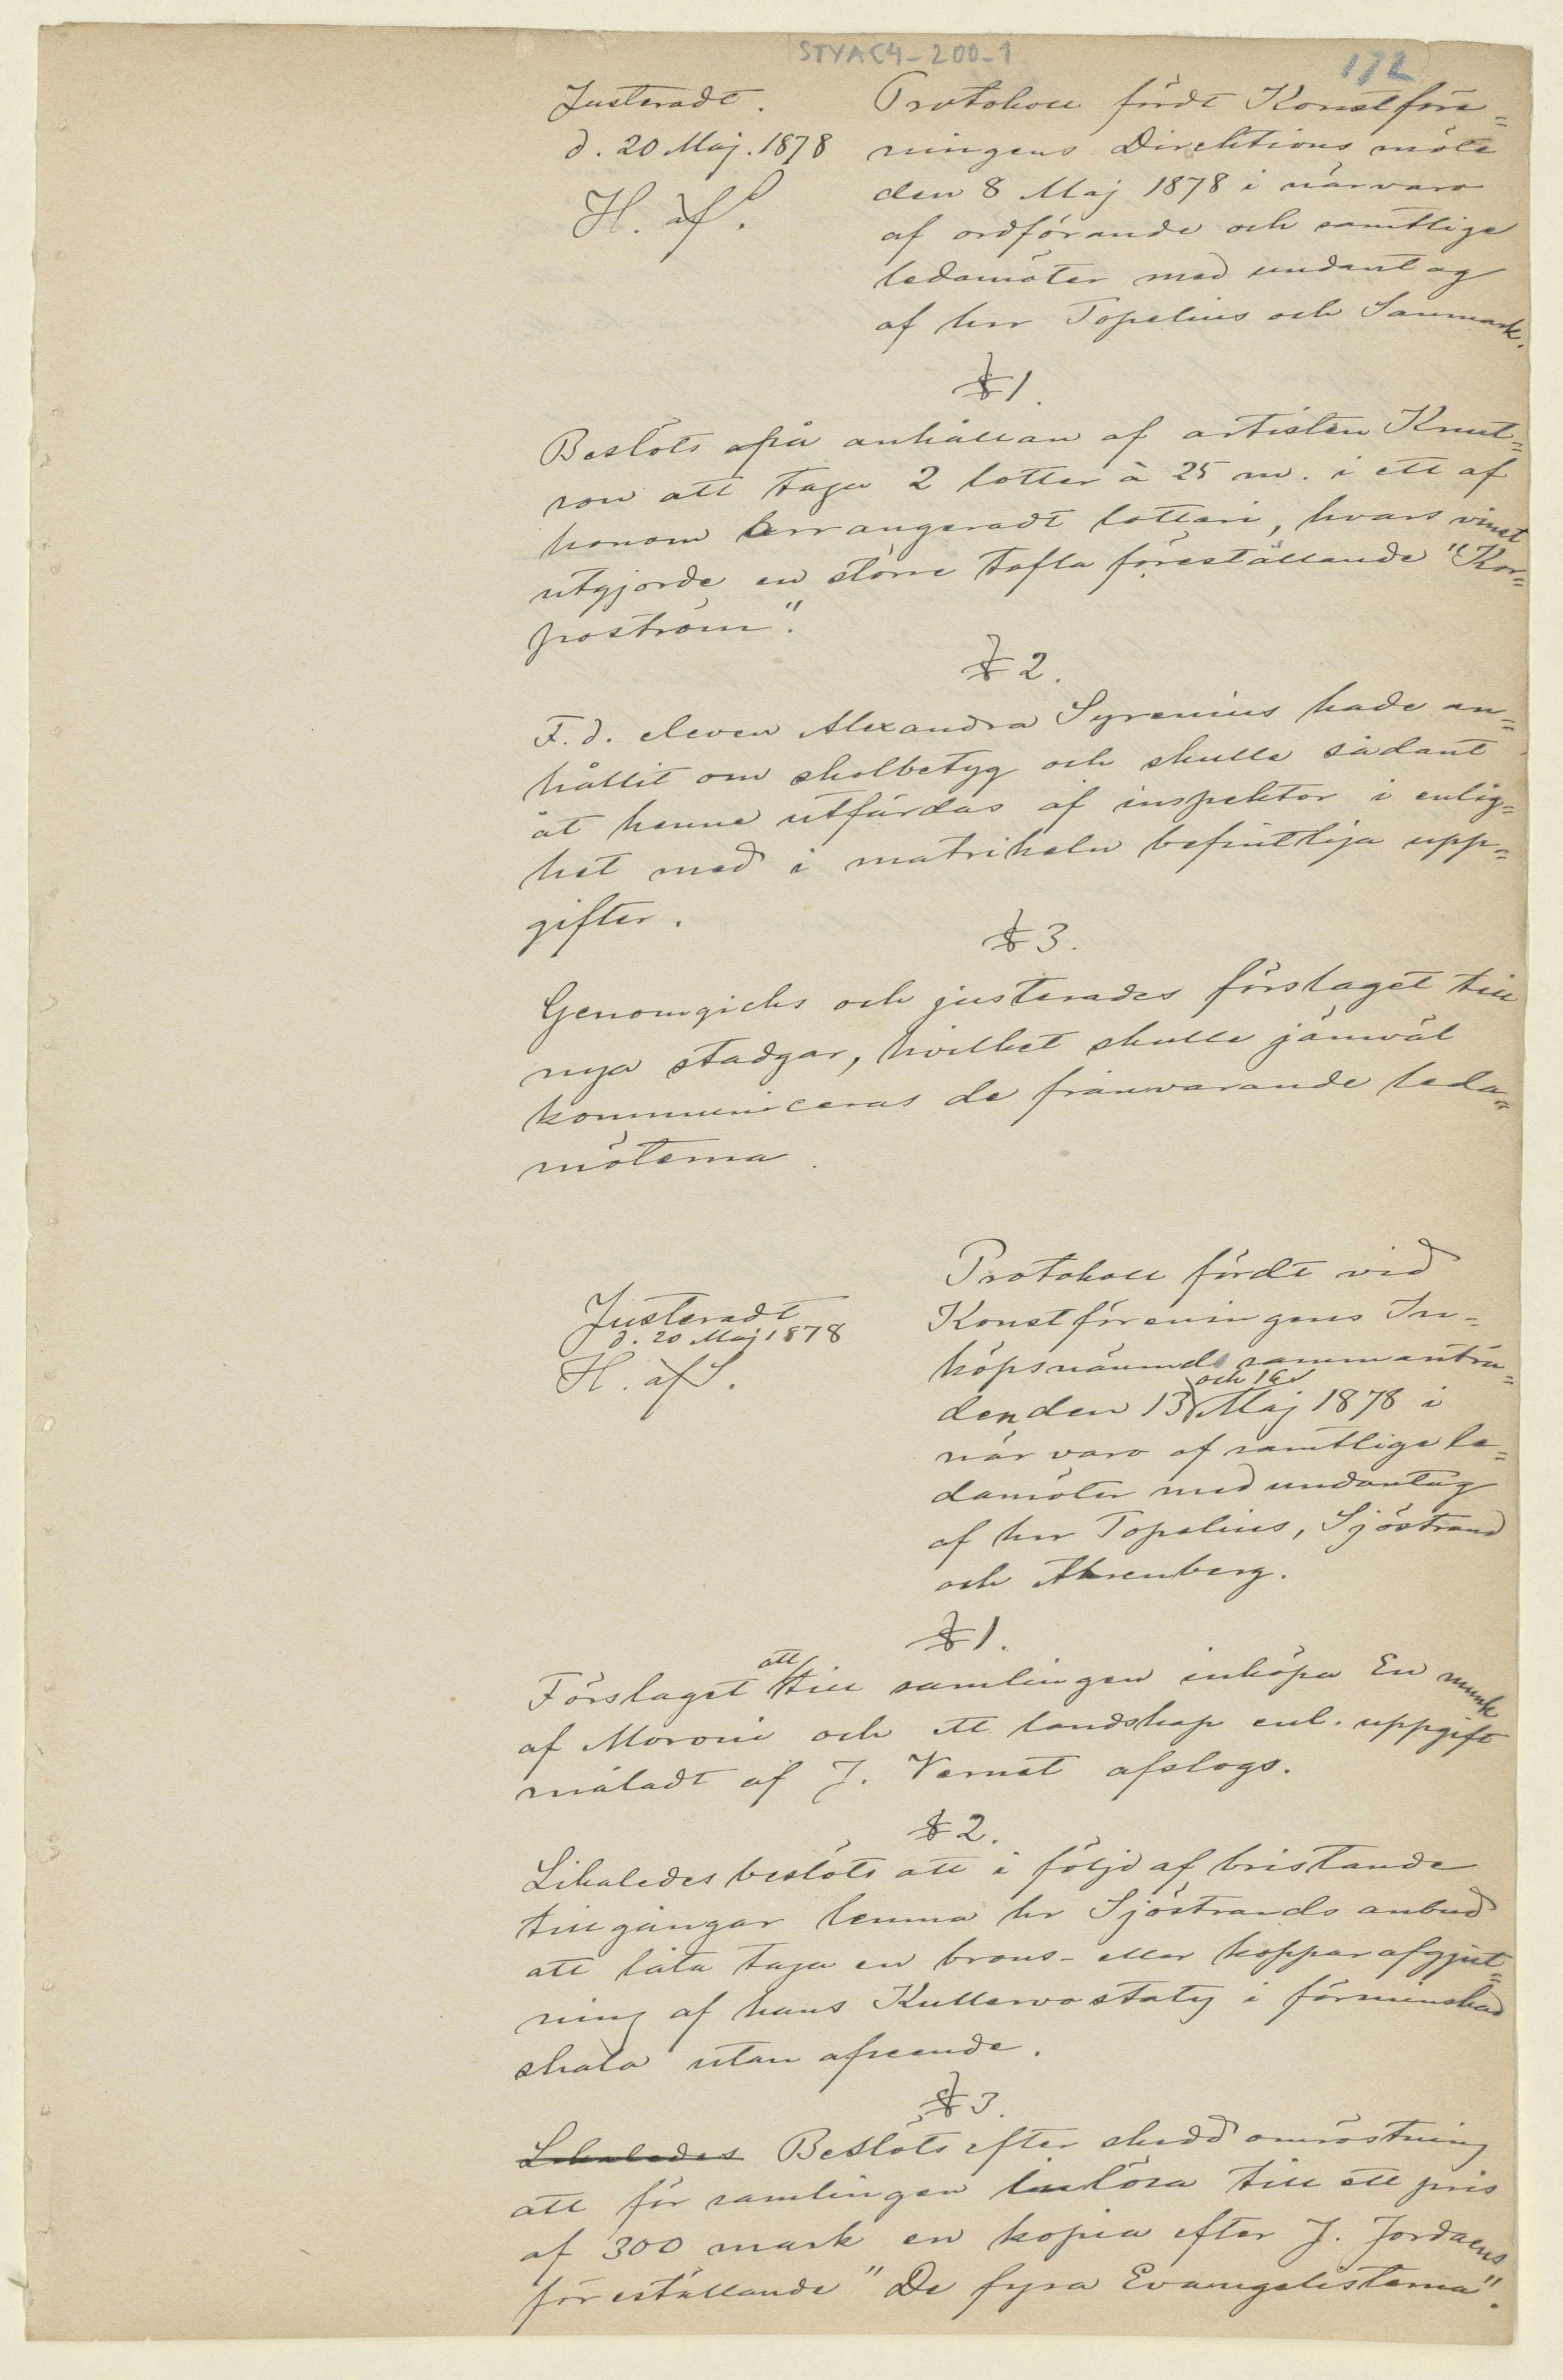 STYAC4-200-1
172
Justeradt.
d. 20 Maj. 1878
H. af S.
Protokoll fördt Konstföre=
ningens Direktions möte
den 8 Maj 1878 i närvaro
af ordförande och samtlige
ledamöter med undantag
af hrr Topelius och Sanmark.
§ 1.
Beslöts på anhållan af artisten Knut=
son att taga 2 lotter à 25 m. i ett af
honom arrangeradt lotteri, hvars vinst
utgjorde en större tafla föreställande "Kor=
poström".
§ 2.
F.d. eleven Alexandra Syrenius hade an=
hållit om skolbetyg och skulle sådant
åt henne utfärdas af inspektor i enlig=
het med i matrikeln befintliga upp=
gifter.
§ 3.
Genomgicks och justerades förslaget till
nya stadgar, hvilket skulle jämväl
kommuniceras de frånvarande leda=
möterna.
Justeradt
d. 20 Maj 1878
H. af S.
Protokoll fördt vid
Konstföreningens In=
köpsnämnds sammanträ=
den den 13 och 16 Maj 1878 i
närvaro af samtlige le=
damöter med undantag
af hrr Topelius, Sjöstrand
och Ahrenberg.
§ 1.
Förslaget att till samlingen inköpa En munk
af Moroni och ett landskap enl. uppgift
måladt af J. Vernet afslogs.
§ 2.
Likaledes beslöts att i följd af bristande
tillgångar lemna hr Sjöstrands anbud
att låta taga en brons- eller kopparafgjut=
ning af hans Kullervostaty i förminskad
skala utan afseende.
§ 3.
Likaledes Beslöts efter skedd omröstning
att för samlingen inlösa till ett pris
af 300 mark en kopia efter J. Jordaens
föreställande "De fyra Evangelisterna".